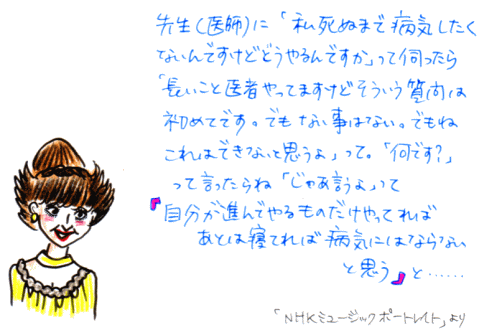 先生(医師)に「私死ぬまで病気したく
ないんですけどどうやるんですか」って伺ったら
「長いこと医者やってますけどそういう質問は
初めてです。でもない事はない。でもね
これはできないと思うよ」って。「何です?」
って言ったらね「じゃあ言うよ」って
『自分が進んでやるものだけやってれば
あとは寝てれば病気にはならない
と思う』と……
「NHKミュージックポートレイト」より